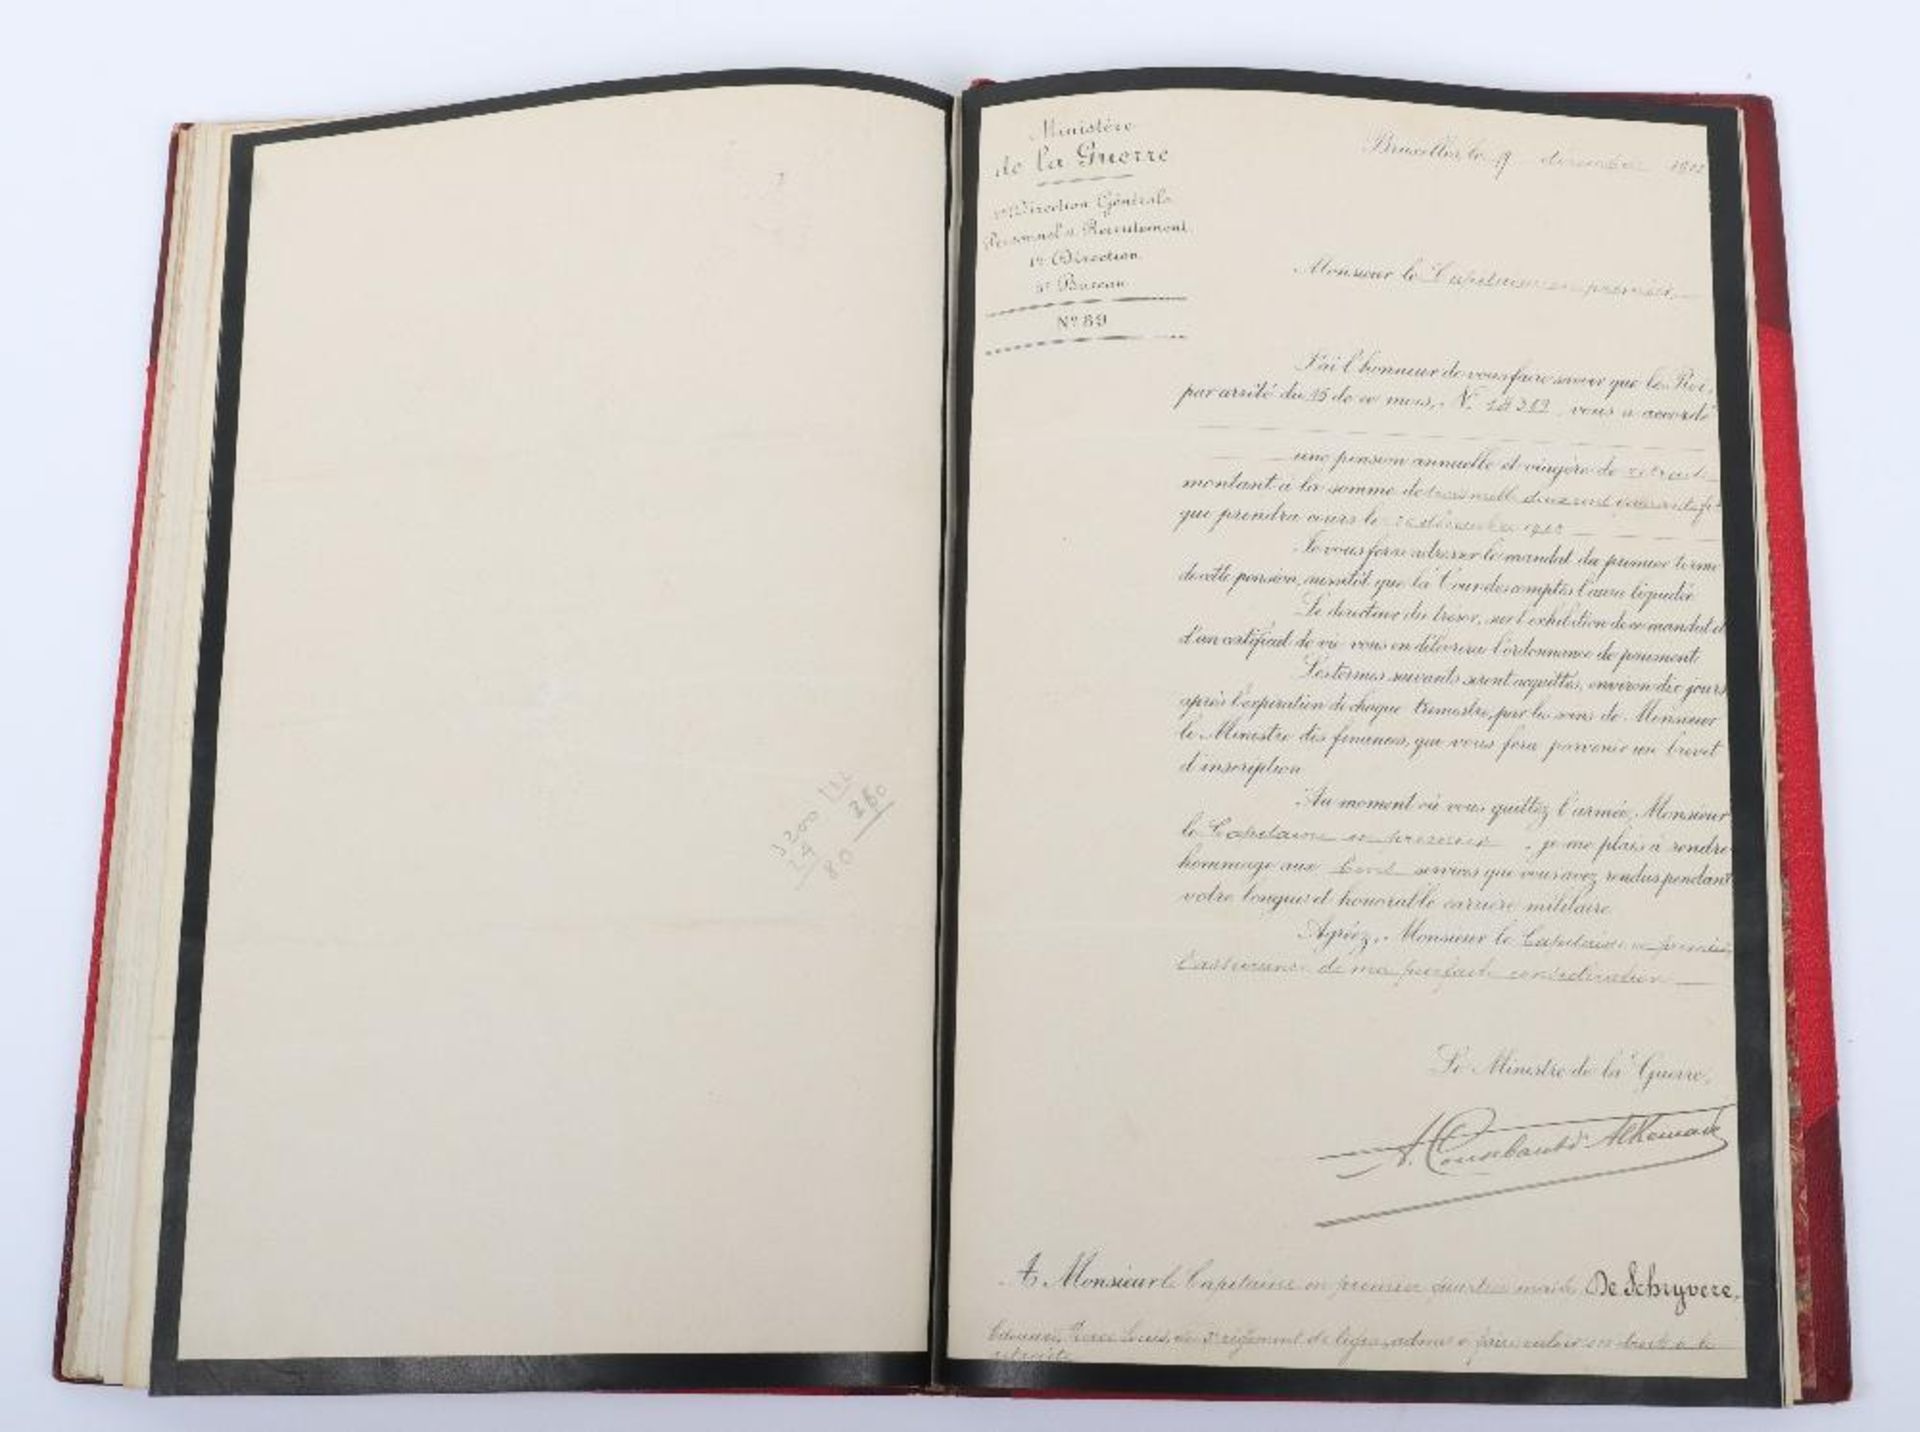 3200
24
80
260
Ministère
de la Guerre
Direction Générale
Personnel et Recrutement
1re Direction
Bureau
N° 89
Bruxelles, le 19 décembre 1912
Monsieur le Capitaine en premier,
J'ai l'honneur de vous faire savoir que le Roi,
par arrêté du 15 de ce mois, N. vous a accordé
une pension annuelle et viagère de retraite
montant à la somme de trois mille deux cent
que prendra cours le 26 décembre
Je vous ferai adresser le mandat du premier terme
de cette pension, aussitôt que la Cour des comptes l'aura liquidée.
Le directeur du trésor, sur l'exhibition de ce mandat et
d'un certificat de vie vous en délivrera l'ordonnance de paiement.
Les termes suivants seront acquittés, environ dix jours
après l'expiration de chaque trimestre, par les soins de Monsieur
le Ministre des finances, qui vous fera parvenir un brevet
d'inscription.
Au moment où vous quittez l'armée, Monsieur
le Capitaine en premier, je me plais à rendre
hommage aux bons services que vous avez rendus pendant
votre longue et honorable carrière militaire.
Agréez, Monsieur le Capitaine en premier,
l'assurance de ma parfaite considération
Le Ministre de la Guerre,
A Monsieur le Capitaine en premier quartier maître De Schryvere,
Louis, du régiment de ligne, admis à faire valoir ses droits à la
retraite